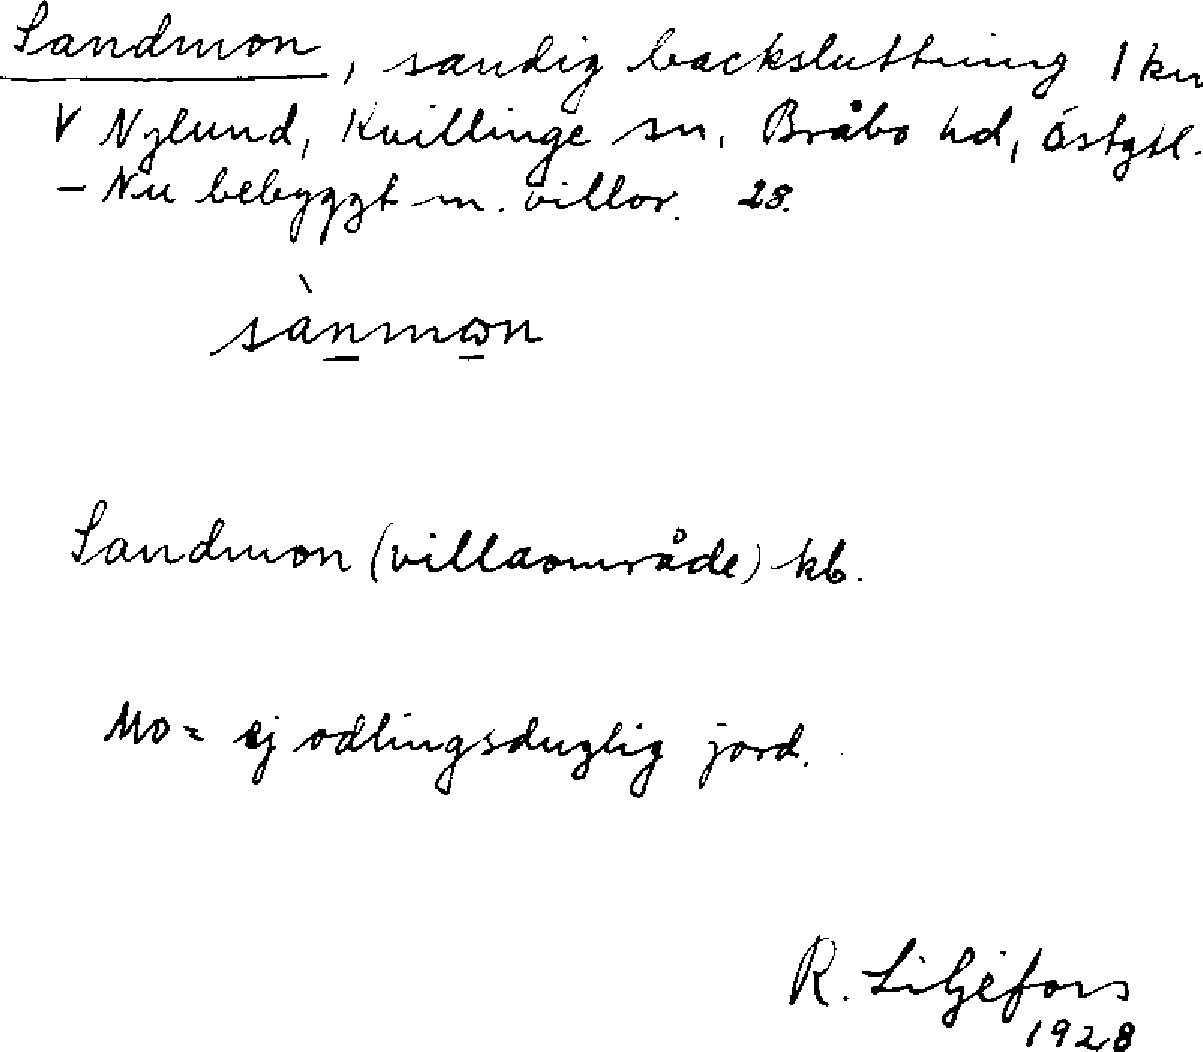 Sandmon, sandig backsluttning 1 km
V Nylund, Kvillinge sn, Bråbo hd, Östgtl.
– Nu bebyggt m. villor. 28.
sànmωn
Sandmon (villaområde) kb.
Mo = ej odlingsduglig jord.
R. Liljefors
1928